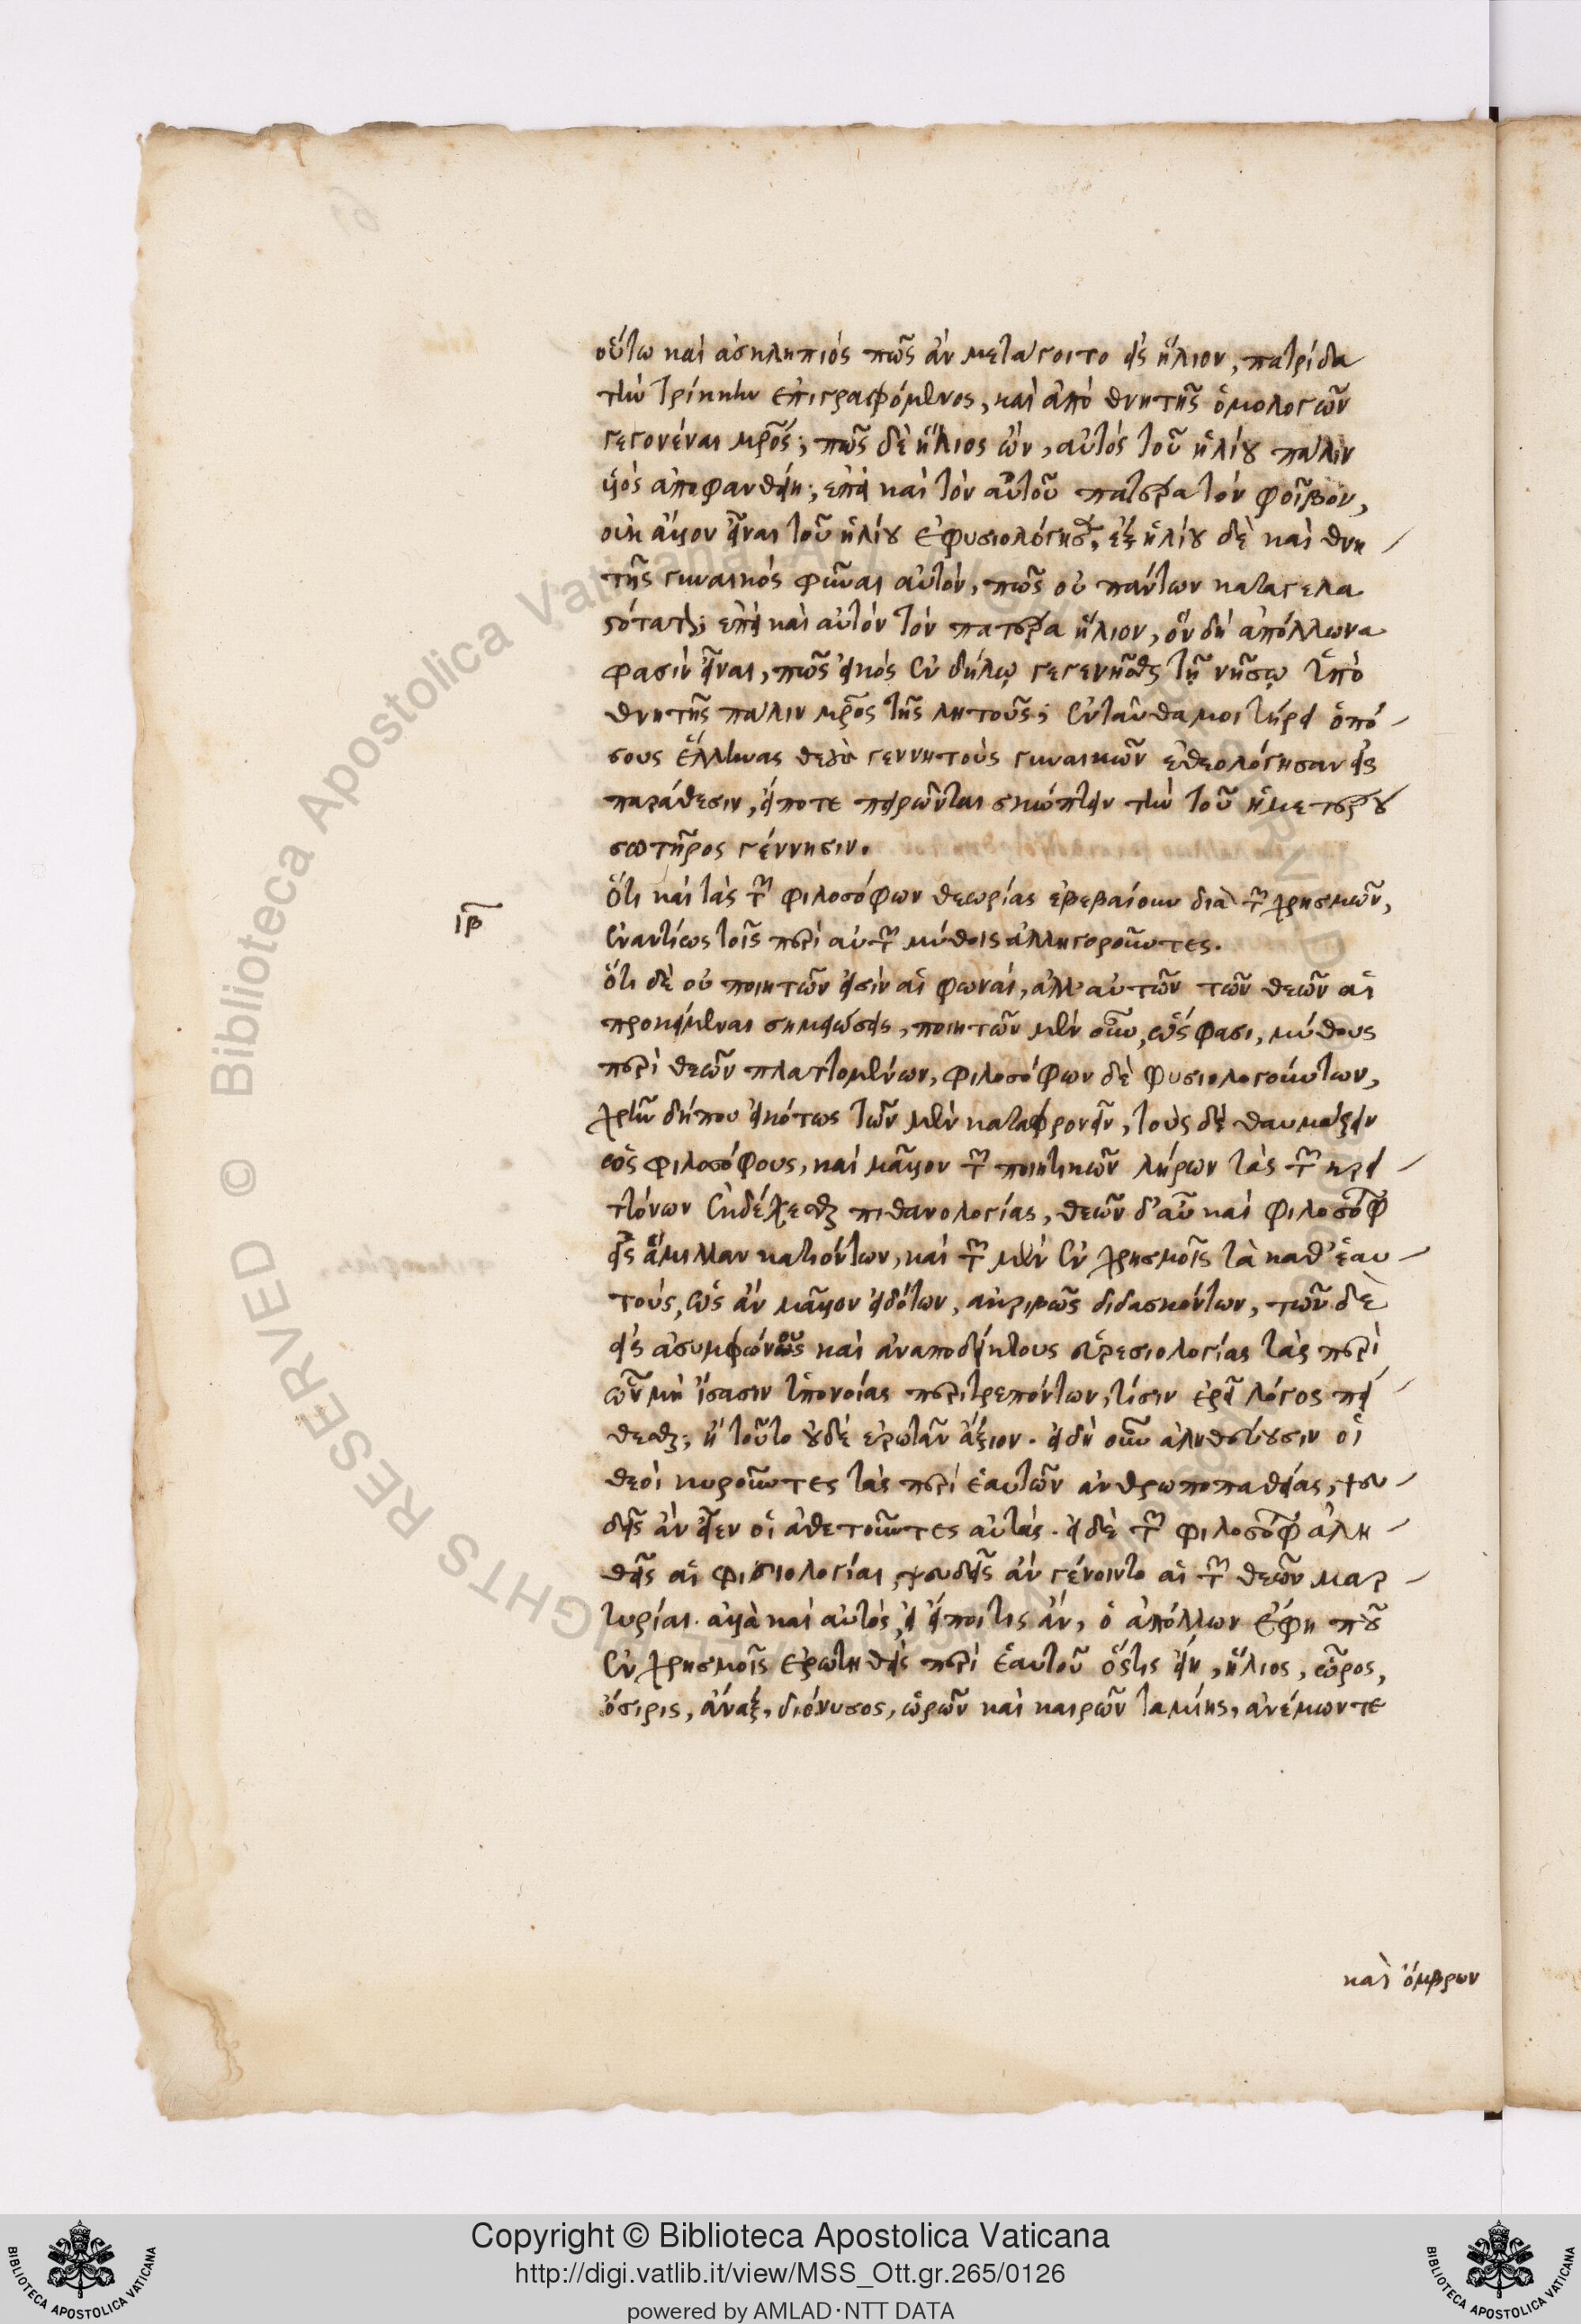 οὕτω καὶ ἀσκληπιός πῶς ἂν μετάγοιτο εἰς ἥλιον, πατρίδα
τὴν τρίκκην ἐπιγραφόμενος, καὶ ἀπὸ θνητῆς ὁμολογῶν
γεγονέναι μρ̅ο̅ς; πῶς δὲ ἥλιος ὢν, αὐτὸς τοῦ ἡλίου πάλιν
υἱὸς ἀποφανθείη; ἐπεὶ καὶ τὸν αὐτοῦ πατέρα τὸν φοῖβον,
οὐκ ἄλλον εἶναι τοῦ ἡλίου ἐφυσιολόγησαν, ἐξ ἡλίου δὲ καὶ θνη
τῆς γυναικός φῦναι αὐτὸν, πῶς οὐ πάντων καταγελα
στότατον; ἐπεὶ καὶ αὐτὸν τὸν πατέρα ἥλιον, ὃν δὴ ἀπόλλωνα
φασὶν εἶναι, πῶς εἰκός ἐν δήλῳ γεγενῆσθαι τῇ νήσῳ ὑπὸ
θνητῆς πάλιν μρ̅ος τῆς λητοῦς; ἐνταῦθά μοι τήρει ὁπό
σους ἕλληνας θεοὺς γεννητοὺς γυναικῶν ἐθεολόγησαν εἰς
παράθεσιν, εἴποτε πειρῶνται σκώπτειν τὴν τοῦ ἡμετέρου
σωτῆρος γέννησιν.
ιβ̅
Ὅτι καὶ τὰς τῶν φιλοσόφων θεωρίας ἐβεβαίουν διὰ τῶν χρησμῶν,
ἐναντίως τοῖς περὶ αὐτῶν μύθοις ἀλληγοροῦντες.
ὅτι δὲ οὐ ποιητῶν εἰσὶν αἱ φωναὶ, ἀλλ' αὐτῶν τῶν θεῶν αἱ
προκείμεναι σημειώσεις, ποιητῶν μὲν οὖν, ὥς φασι, μύθους
περὶ θεῶν πλαττομένων, φιλοσόφων δὲ φυσιολογούντων,
χρῆν δήπου εἰκότως τῶν μὲν καταφρονεῖν, τοὺς δὲ θαυμάζειν
ὡς φιλοσόφους, καὶ μᾶλλον τῶν ποιητικῶν λήρων τὰς τῶν κρει
ττόνων ἐκδέχεσθαι πιθανολογίας, θεῶν δ' αὖ καὶ φιλοσόφων
εἰς ἅμιλλαν κατιόντων, καὶ τῶν μὲν ἐν χρησμοῖς τὰ καθ' ἑαυ
τούς, ὡς ἂν μᾶλλον εἰδότων, ἀκριβῶς διδασκόντων, τῶν δὲ
εἰς ἀσυμφώνους καὶ ἀναποδείκτους εὑρεσιολογίας τὰς περὶ
ὧν μὴ ἴσασιν ὑπονοίας περιτρεπόντων, τίσιν ἐρεῖ λόγος πεί
θεσθαι; ἢ τοῦτο οὐδὲ ἐρωτᾶν ἄξιον. εἰ δὴ οὖν ἀληθεύουσιν οἱ
θεοὶ κυροῦντες τὰς περὶ ἑαυτῶν ἀνθρωποπαθείας, ψευ
δεῖς ἂν εἶεν οἱ ἀθετοῦντες αὐτάς. εἰ δὲ τῶν φιλοσόφων ἀλη
θεῖς αἱ φισιολογίαι, ψευδεῖς ἂν γένοιντο αἱ τῶν θεῶν μαρ
τυρίαι. ἀλλὰ καὶ αὐτὸς, εἰ εἴποι τις ἂν, ὁ ἀπόλλων ἔφη που
ἐν χρησμοῖς ἐρωτηθεὶς περὶ ἑαυτοῦ ὅστις εἴη, ἥλιος, ὧρος,
ὄσιρις, ἄναξ, διόνυσος, ὡρῶν καὶ καιρῶν ταμίης, ἀνέμων τε
καὶ ὄμβρων
Copyright © Biblioteca Apostolica Vaticana
http://digi.vatlib.it/view/MSS_Ott.gr.265/0126
powered by AMLAD·NTT DATA